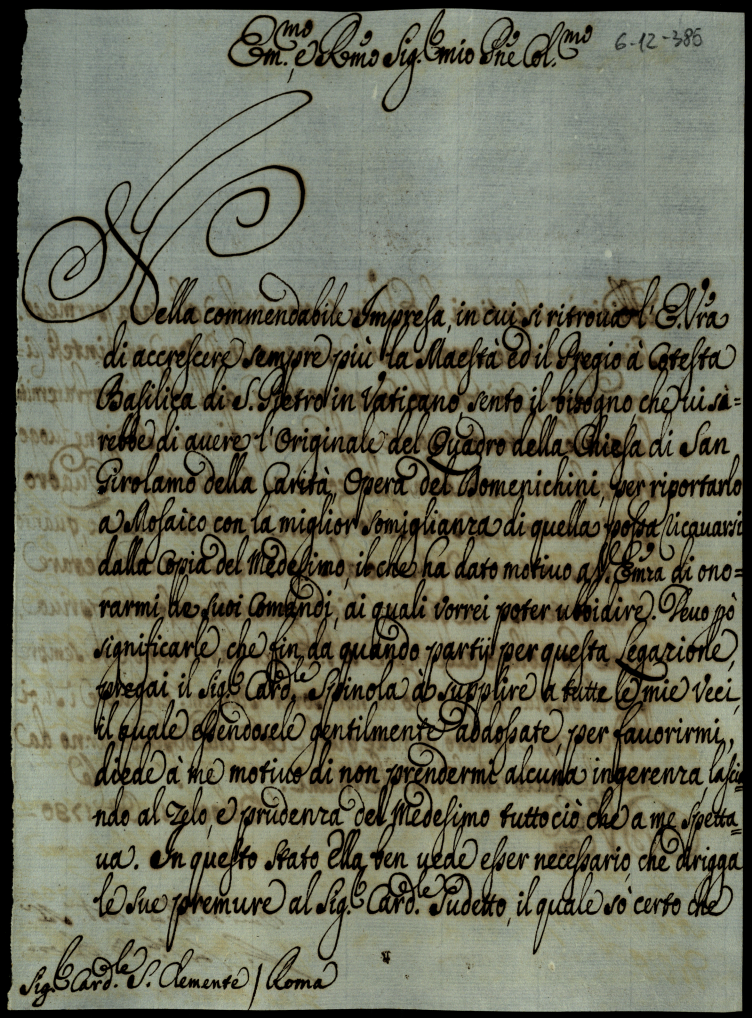 Em.mo e Rmo Sig.r mio Pñe Col.mo
6-12-386
Nella commendabile Impresa, in cui si ritrova l'E. Vra
di accrescere sempre più la Maestà ed il Pregio à Cotesta
Basilica di S. Pietro in Vaticano, sento il bisogno che vi sa=
rebbe di avere l'Originale del Quadro della Chiesa di San
Girolamo della Carità, Opera del Domenichini, per riportarlo
a Mosaico con la miglior somiglianza di quella possa ricavarsi
dalla Copia del Medesimo, il che ha dato motivo a V. Emza di ono=
rarmi de suoi Comandi, ai quali vorrei poter ubbidire. Devo pò
significarle, che fin da quando partij per questa Legazione,
pregai il Sig.r Card.le Spinola à supplire a tutte le mie Veci,
il quale essendosele gentilmente addossate, per favorirmi,
diede à me motivo di non prendermi alcuna ingerenza, lascia
ndo al Zelo, e prudenza del Medesimo tutto ciò che a me spetta=
va. In questo stato Ella ben vede esser necessario, che dirigga
le sue premure al Sig.r Card.le Sudetto, il quale sò certo che
Sig.r Card.le S. Clemente / Roma